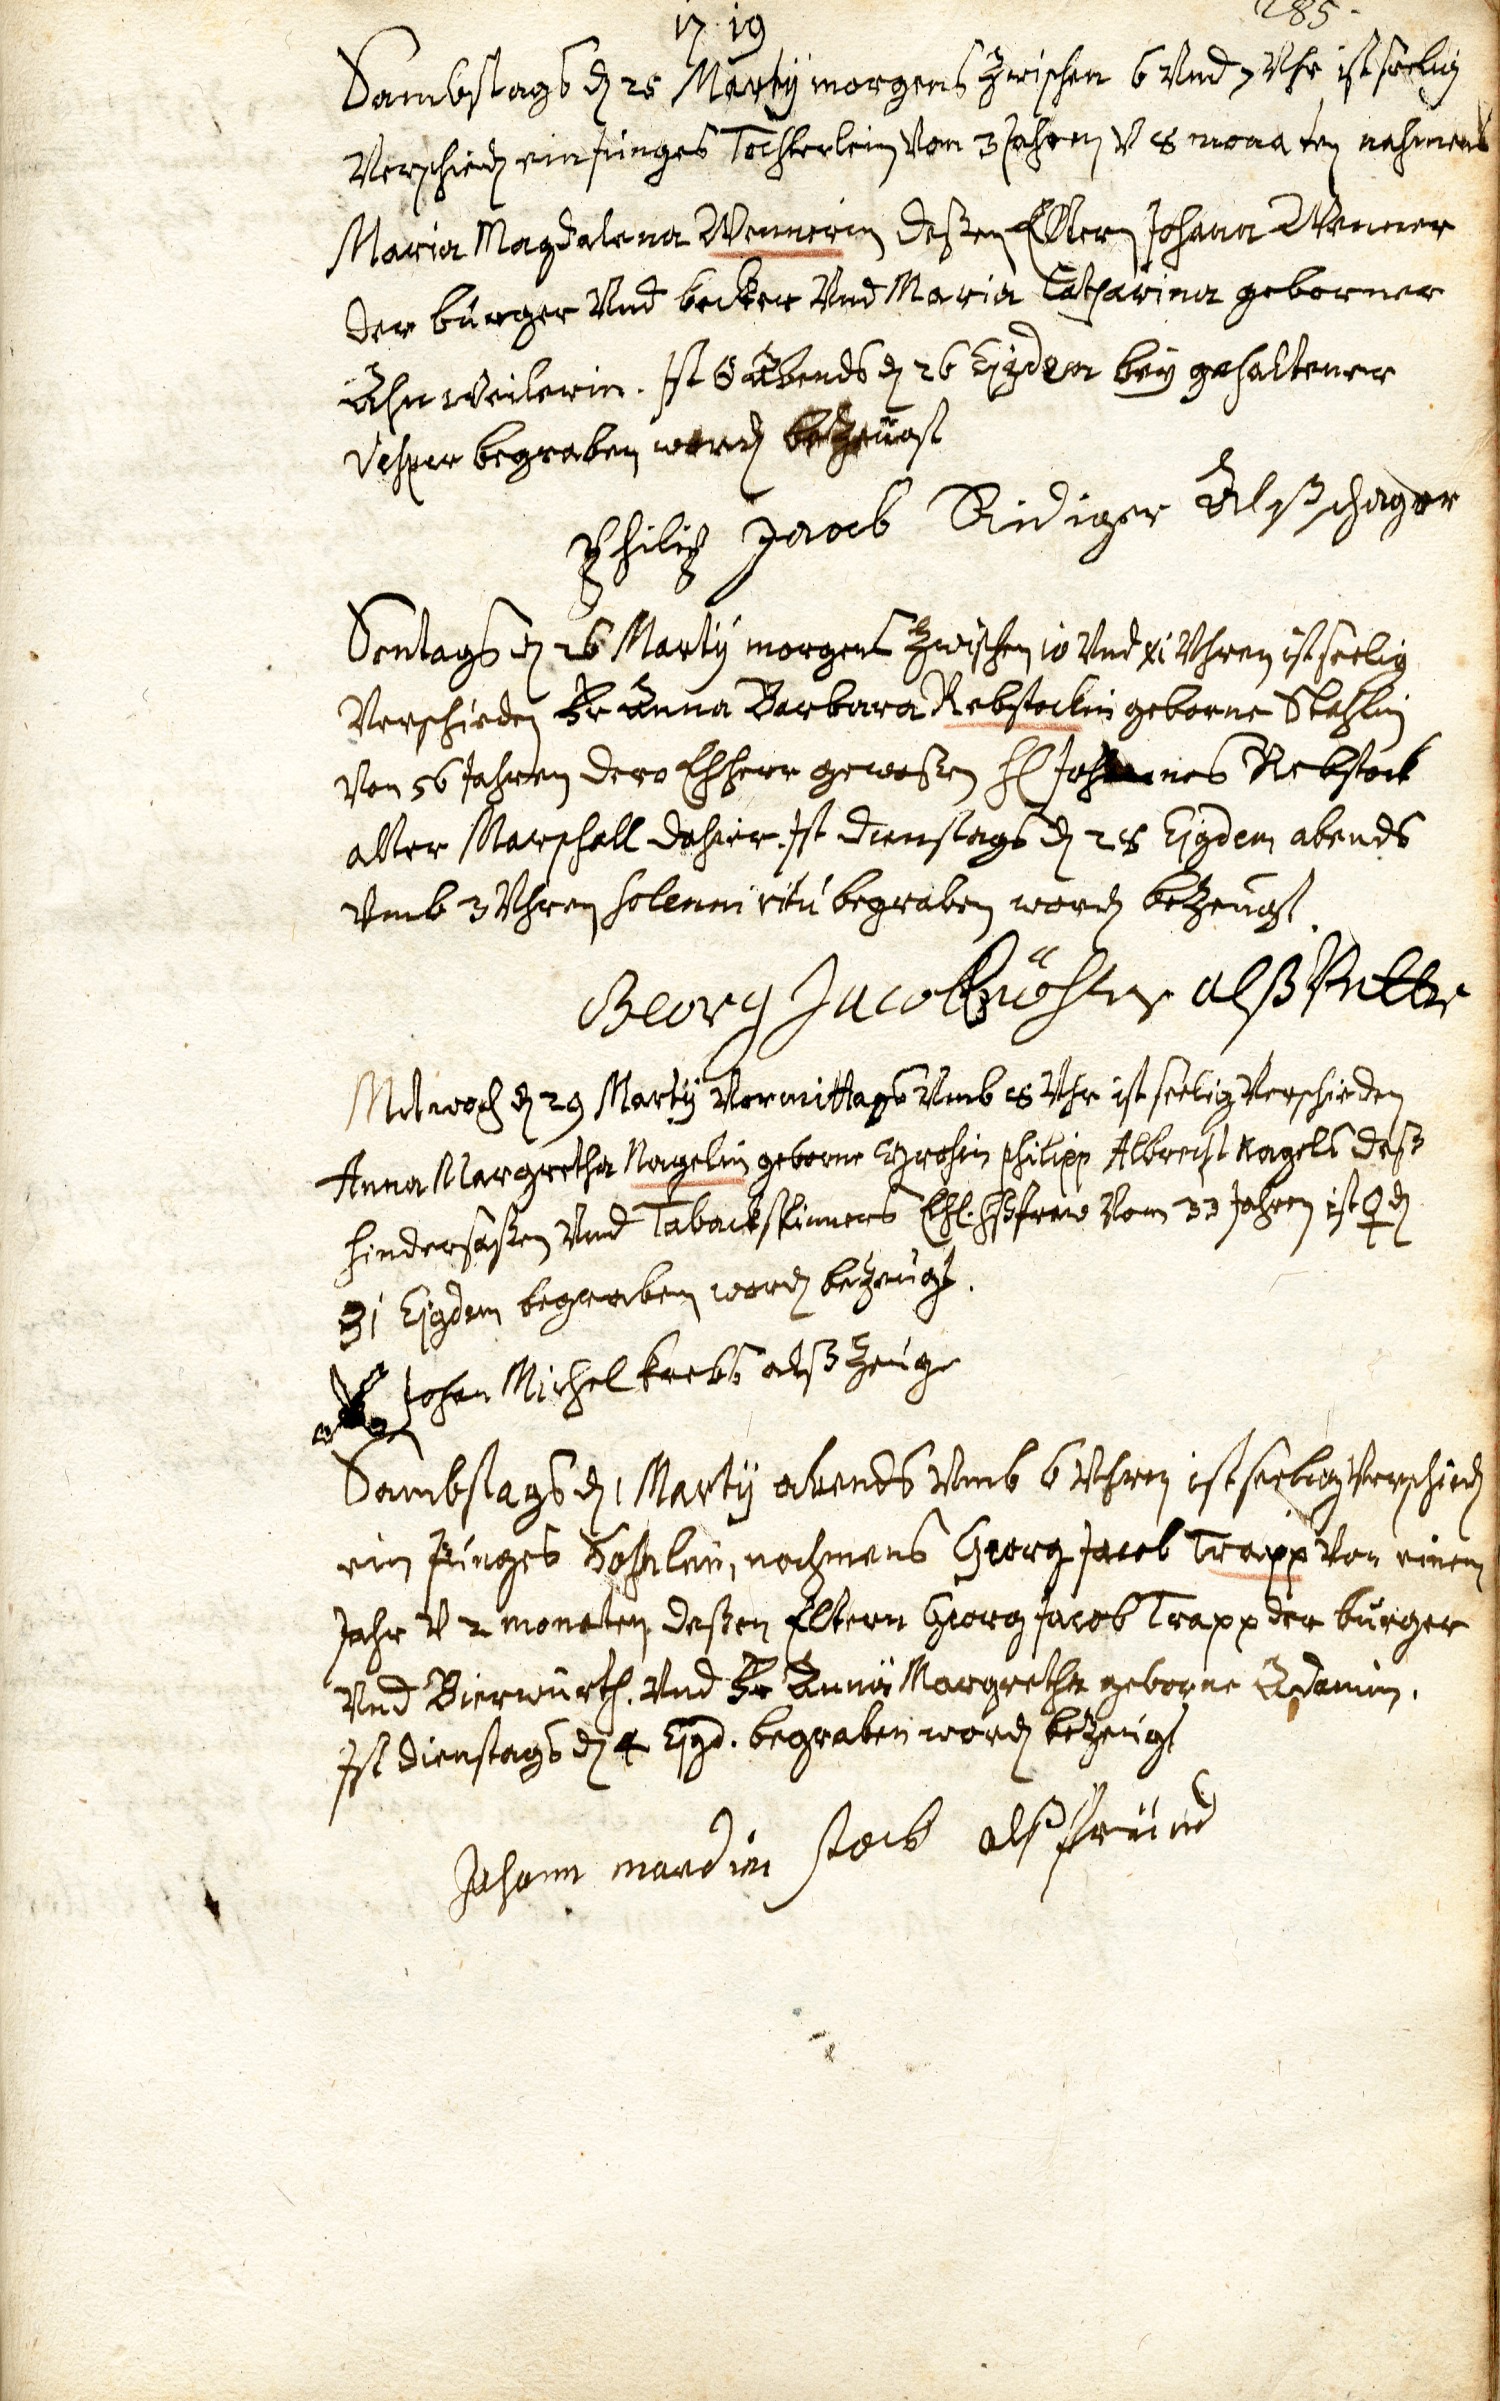 285
17 19
Sambstags d 25 Martÿ morgens Zwischen 6 Vnd 7 Vhr ist seelig
Verschied ein Junges Töchterlein Von 3 Jahren V 8 monaten nahmens
Maria Magdalena Wennerin deßen Eltern Johann Wenner
der bürger Vnd becker Vnd Maria Catharina geborner
Ahnweilerin. Ist abends d 26 Ejgdem beÿ gehaltener
Vesper begraben word bezeugt
Philip Jacob Ridiger Alß schager
Sontags d 26 Martÿ morgens Zwischen 10 Vnd xi Vhren ist seelig
Verschieden Fr Anna Barbara Rebstockin geborne Stehlin
Von 56 Jahren dero Ehherr geweßen H Johannes Rebstock
alter Marschall dahier. Ist dienstags d 28 Ejgdem abends
Vmb 3 Vhren solenni ritu begraben word bezeugt.
Georg Jacob alß Vetter
Mitwoch d 29 Martÿ Vormittags Vmb 8 Vhr ist seelig Verschieden
Anna Margretha Nagelin geborne Philipp Albrecht Nagels deß
hindersaßen Vnd Tabackspinners Ehl. hßfraw Von 33 Jahren ist ♀ d
31 Ejgdem begraben word bezeugt.
Johan Michel Krebs alß Zeuge
Sambstags d 1 Martÿ abends Vmb 6 Vhren ist seelig Verschied
ein Junges Sohnlein, nahmens Georg Jacob Trapp Von einem
Jahr V 2 monaten deßen Eltern Georg Jacob Trapp der bürger
Vnd Bierwürth. Vnd Fr Anna Margretha geborne Adamin.
Ist dienstags d 4 Ejgd. begraben word bezeugt
Johann mardin stock alß freünd